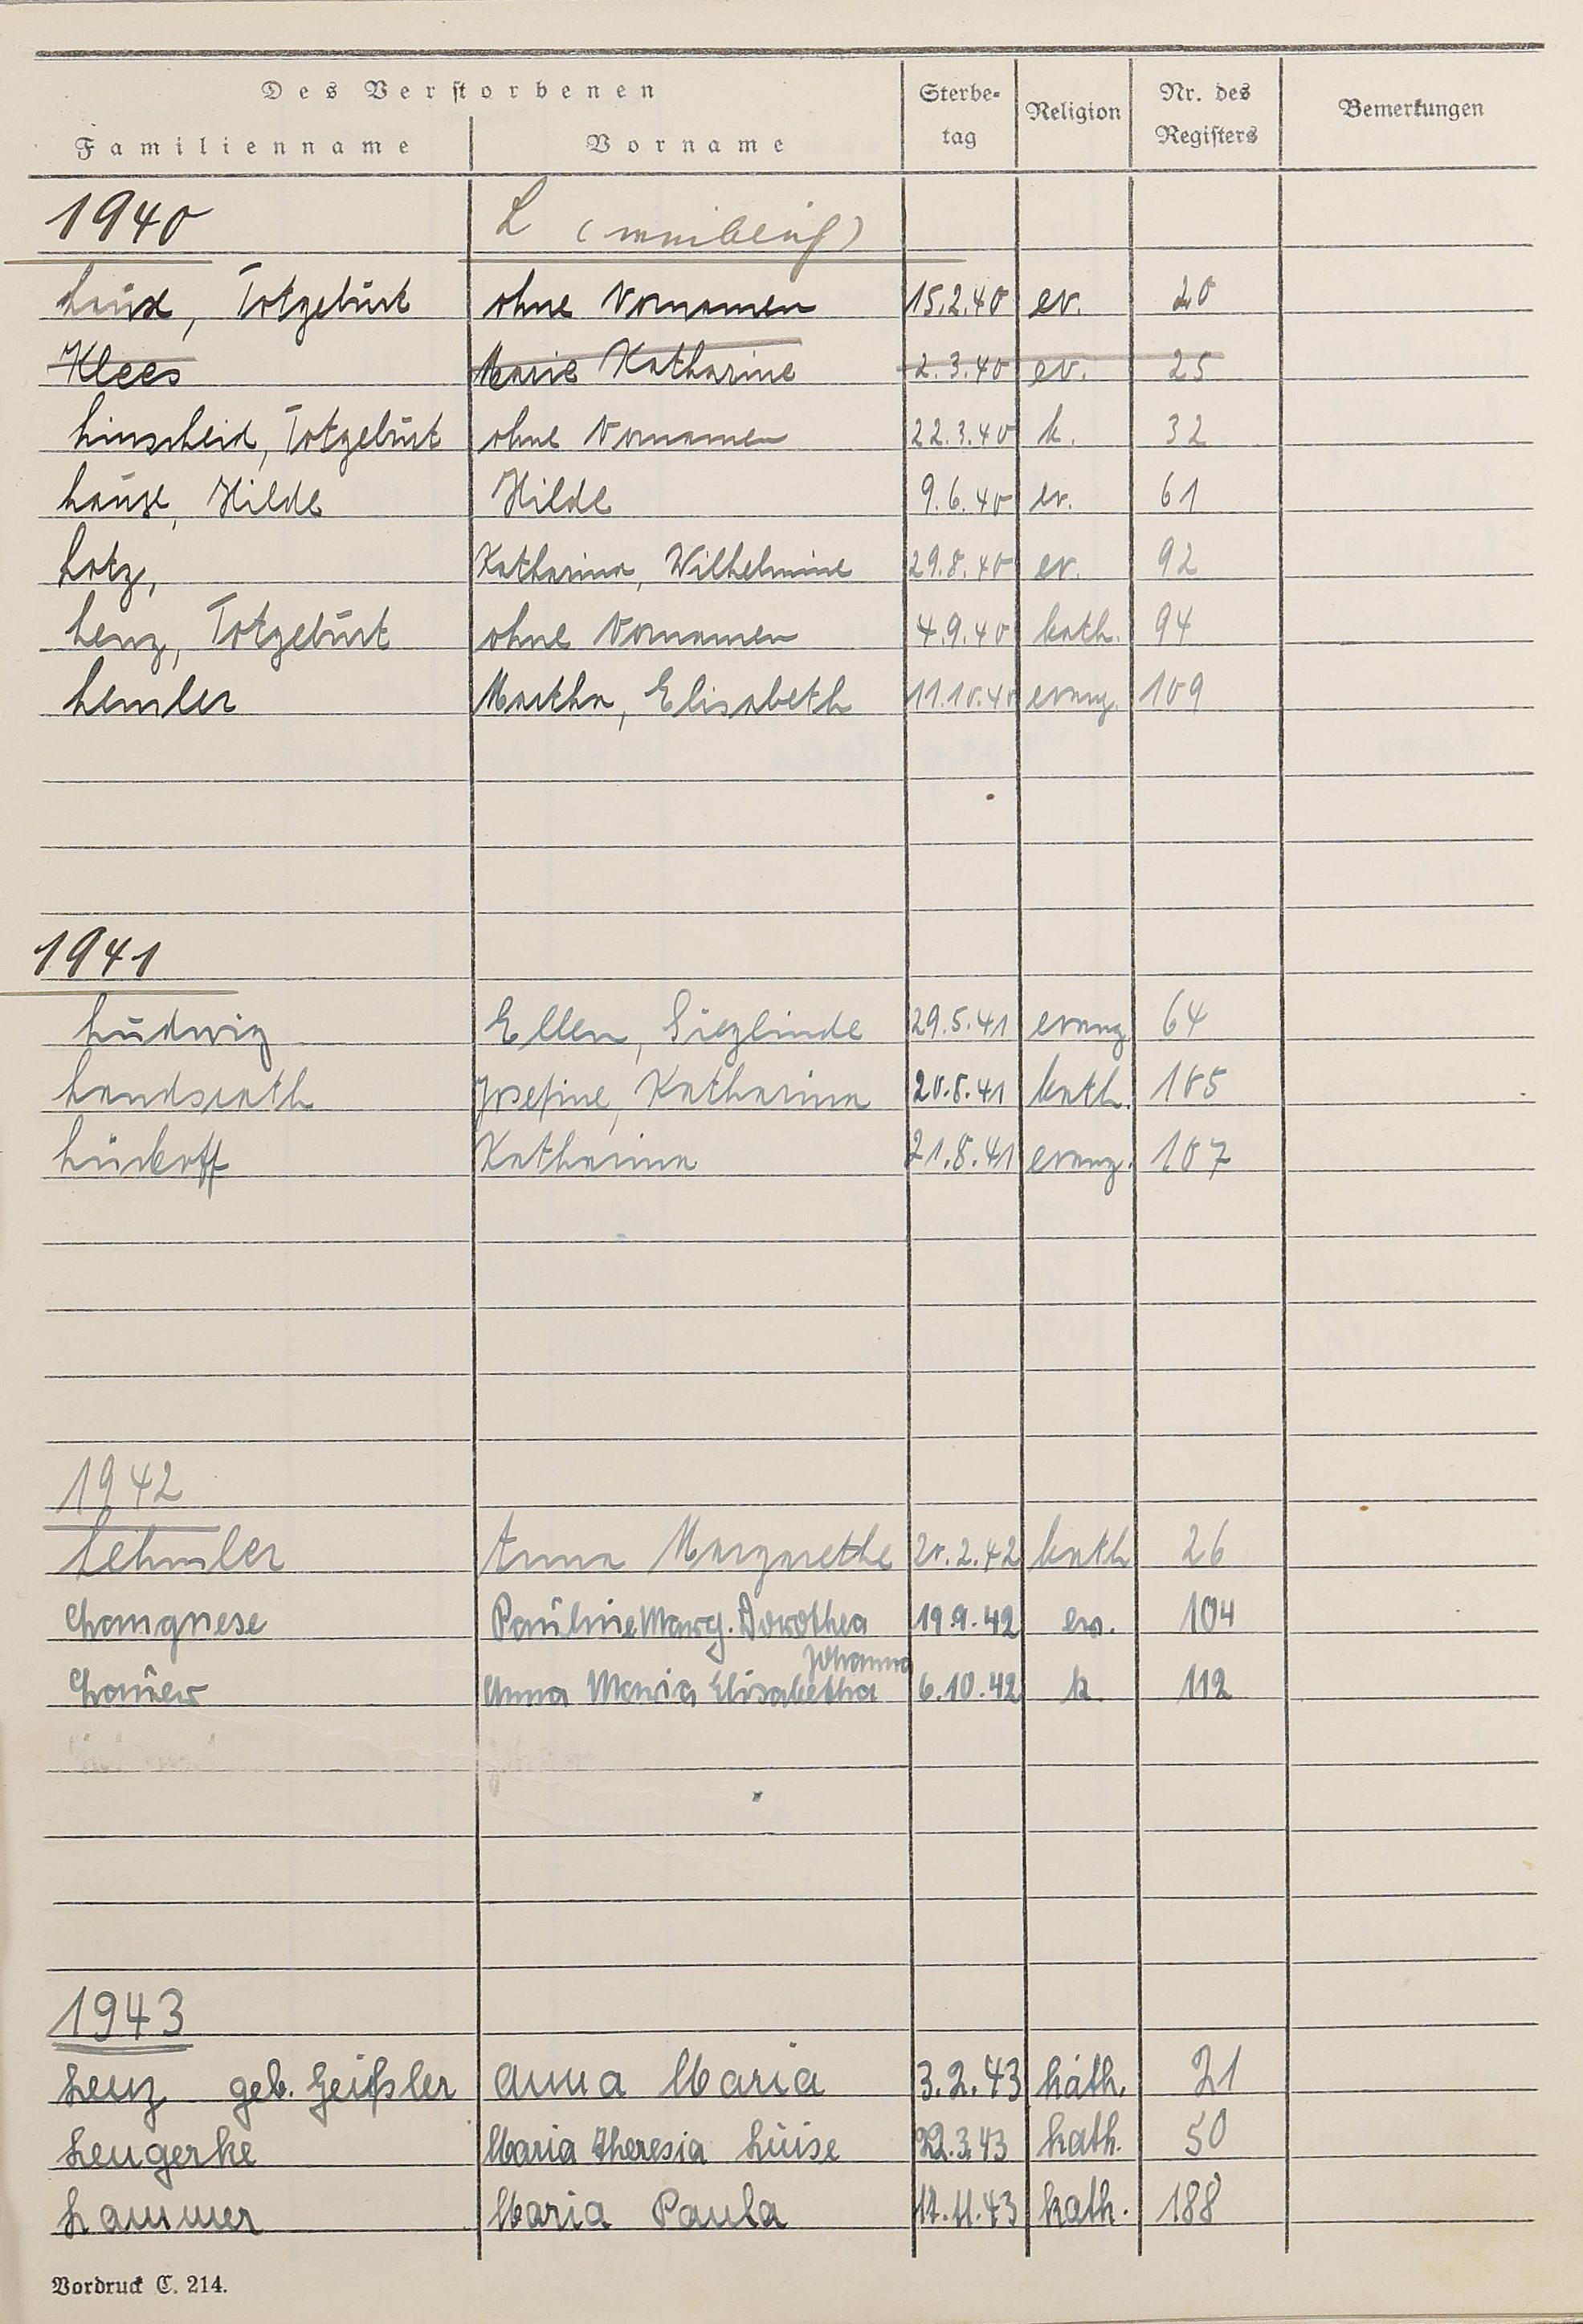 Des Verstorbenen
Sterbetag
Religion
Nr. des Registers
Bemerkungen
Familienname Vorname
1940 L (weiblich)
Totgeburt ohne Vornamen 15.2.40 ev. 20
Klees Marie Katharine 2.3.40 ev. 25
Linscheid, Totgeburt ohne Vornamen 22.3.40 k. 32
Hilde Hilde 9.6.40 ev. 61
Lotz, Katharina, Wilhelmine 29.8.40 ev. 92
Lenz, Totgeburt ohne Vornamen 4.9.40 kath. 94
Lemler Martha, Elisabeth 11.10.40 evang. 109
1941
Ludwig Ellen, Sieglinde 29.5.41 evang. 64
Landsrath Josefine, Katharina 20.8.41 kath. 105
Lückoff Katharina 21.8.41 evang. 107
1942
Lehmler Anna Margarethe 20.2.42 kath 26
Langnese Pauline Marg. Dorothea 19.9.42 ev. 104
Johanna
Lauer Anna Maria Elisabetha 6.10.42 k. 112
1943
Lenz geb. Geißler Anna Maria 3.2.43 kath. 21
Lengerke Maria Theresia Luise 22.3.43 kath. 50
Lammer Maria Paula 17.11.43 kath. 188
Vordruck C. 214.